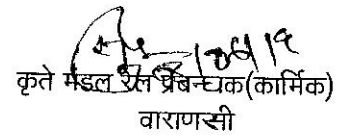 कृते मंडल रेल प्रबन्धक(कार्मिक)
वाराणसी